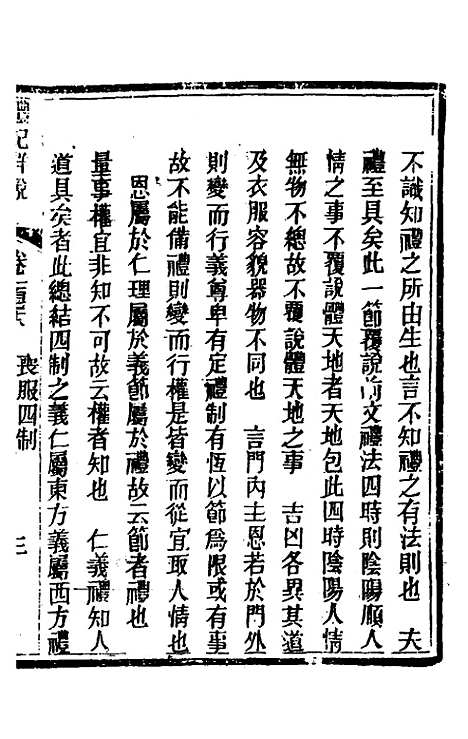 不識知禮之所由生也言不知禮之有法則也　夫
禮至具矣此一節覆說前文禮法四時則陰陽順人
情之事不覆說體天地者天地包此四時陰陽人情
無物不總故不覆說體天地之事　吉凶各異其道
及衣服容貌器物不同也　言門內主恩若於門外
則變而行義尊卑有定禮制有恆以節為限或有事
故不能備禮則變而行權是皆變而從宜取人情也
恩屬於仁理屬於義節屬於禮故云節者禮也
量事權宜非知不可故云權者知也　仁義禮知人
道具矣者此總結四制之義仁屬東方義屬西方禮
禮記詳說　卷　喪服四制　三